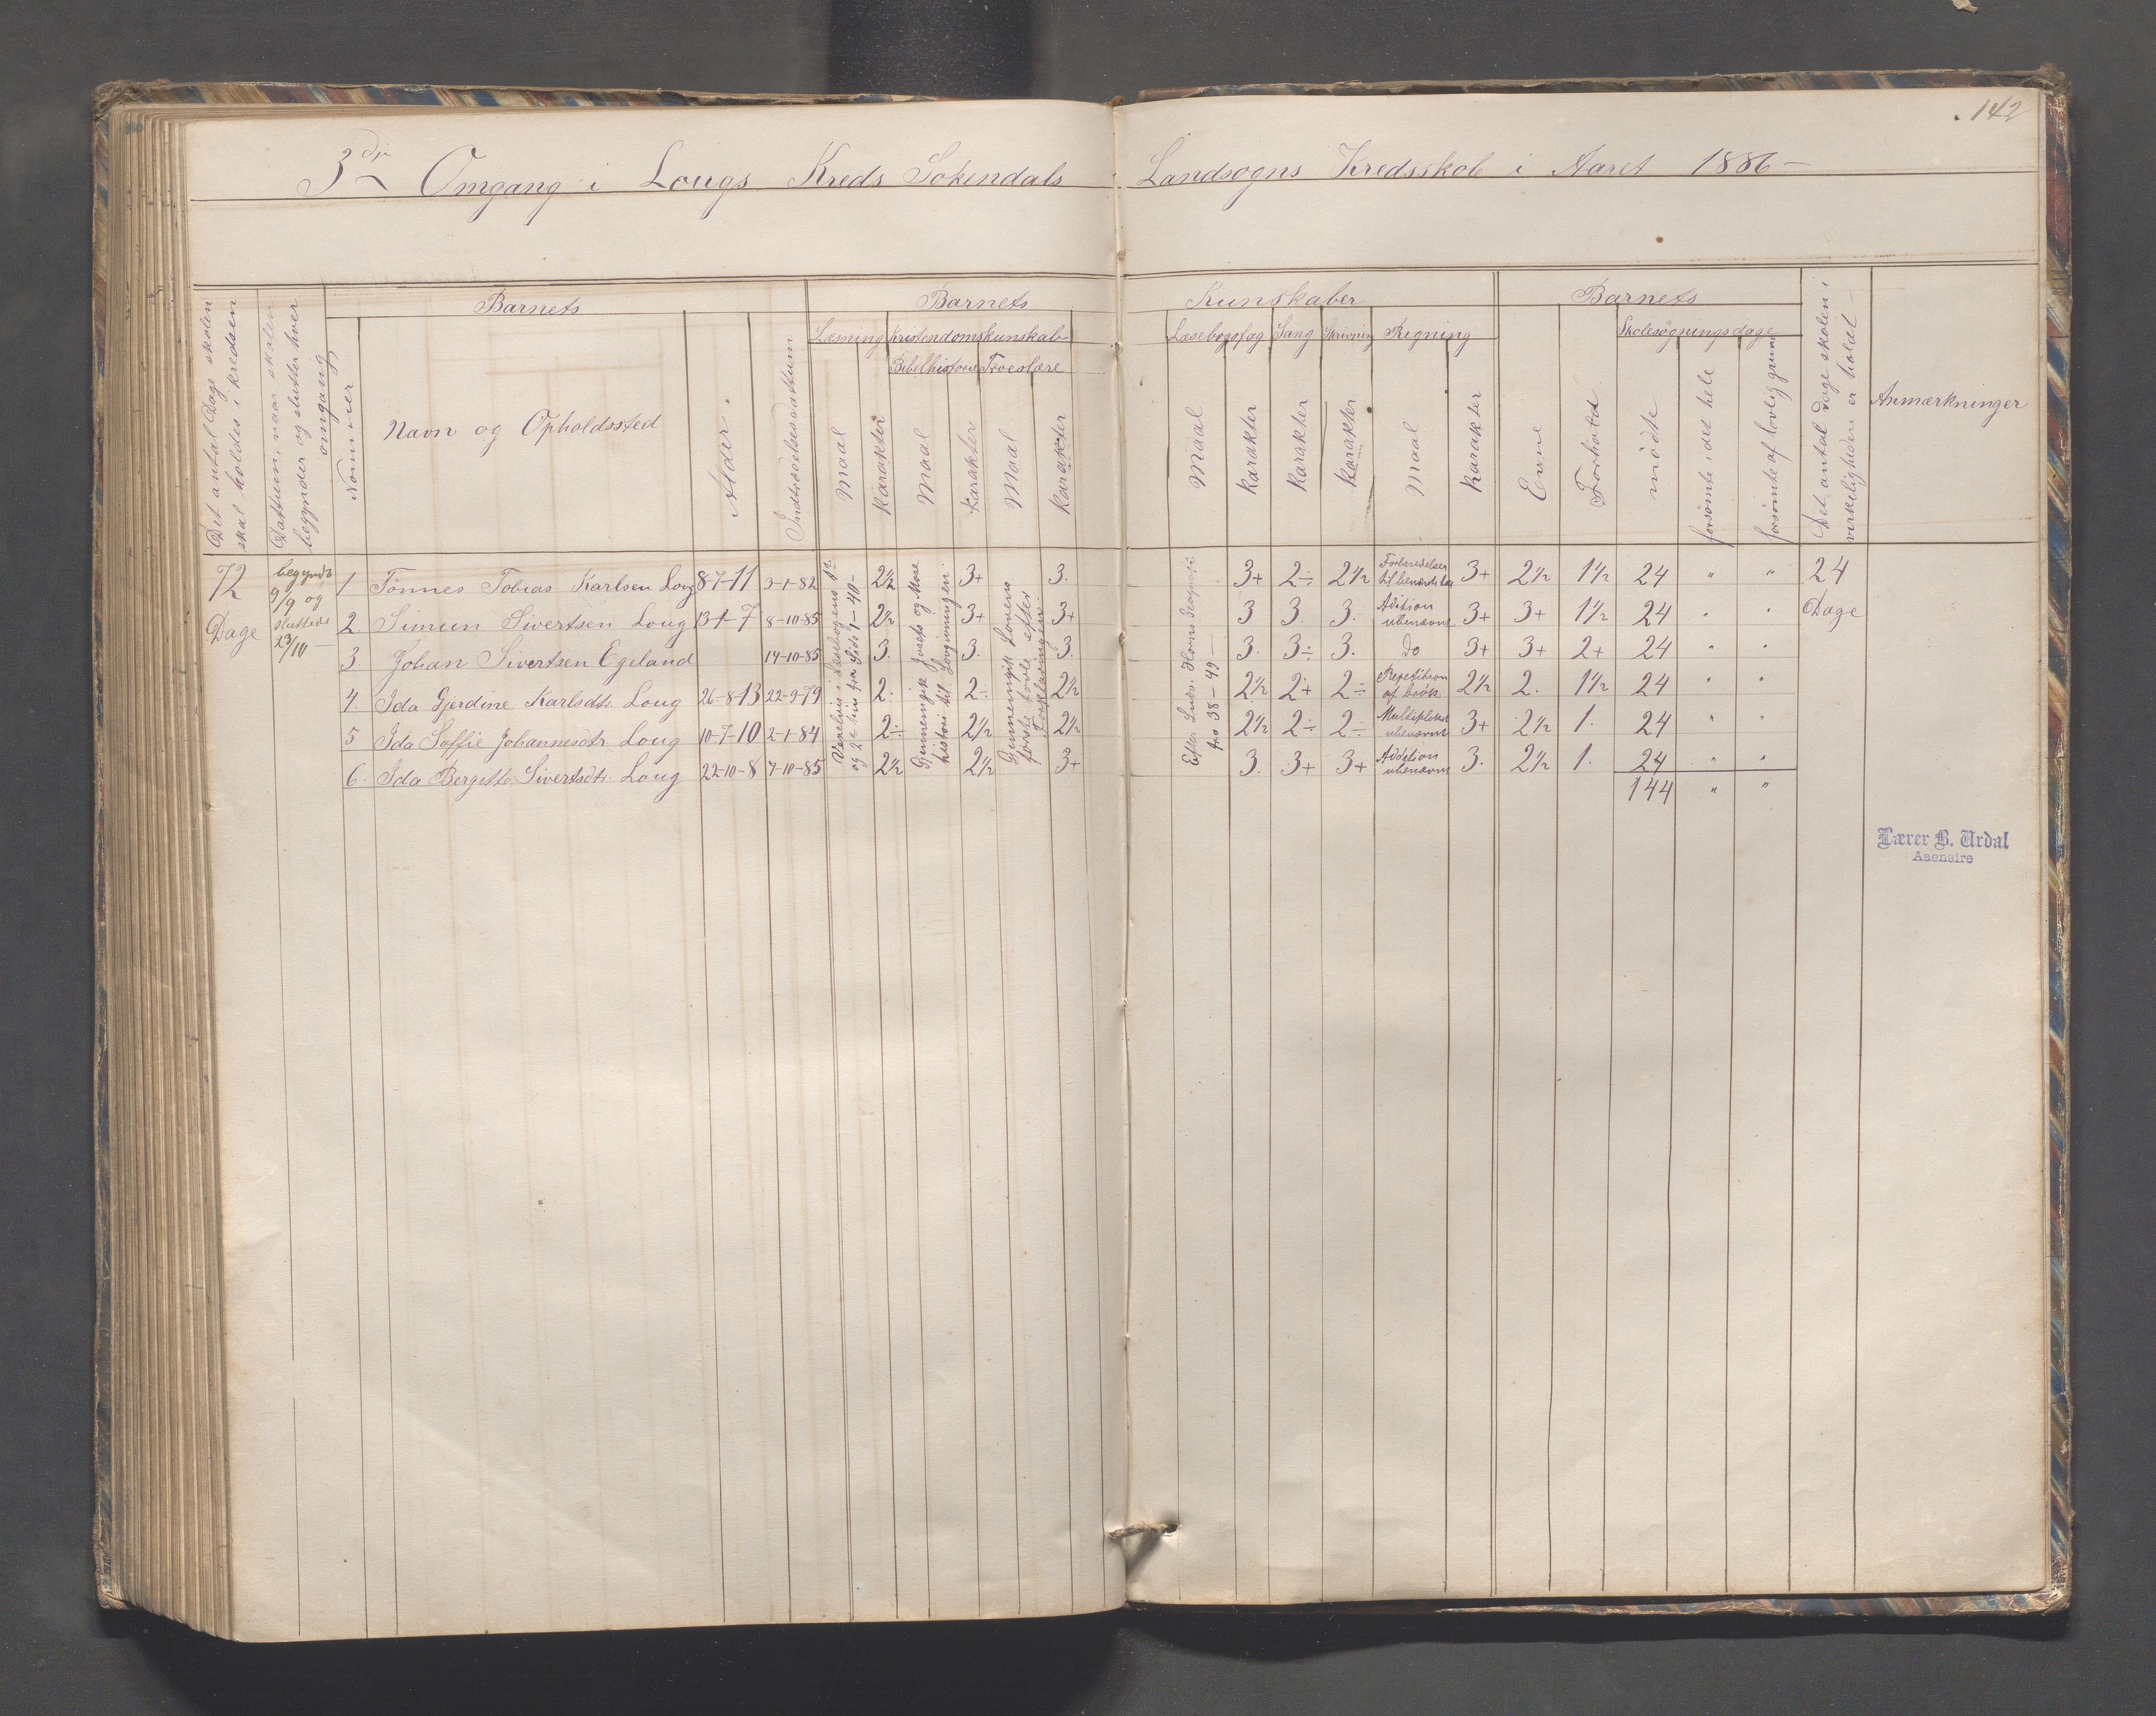 142
3die Omgang i Lougs Kreds Sokendals Landsogns Kredsskole i Aaret 1886 —
Det antal Dage skolen skal holdes i kredsen
Dattum, naar skolen begynder og slutter hver omgang
Barnets
Nommer
Navn og Opholdssted
Alder.
Indtrædelsesdattum
Barnets Kunskaber
Læsning
Kristendomskunskab
Bibelhistorie
Troeslære
Maal
Karakter
Maal
Karakter
Maal
Karakter
Læsebogsfag
Sang
Skrivning
Regning
Maal
Karakter
Karakter
Karakter
Maal
Karakter
Barnets
Evne
Forhold
Skolesøgningsdage
mødte
forsømte i det hele
forsømte af lovlig grund
Det antal dage skolen i virkeligheden er holdt —
Anmærkninger
72 Dage
begyndte 9/9 og sluttede 23/10 —
læsebogens
og fra Side 1-40-
Gjennemgik Josefs og Mose historie til Lovgivningen.
Gjennemgik Lovens første tavle efter Forklaringen.
Efter Ludv. Horns Geografi fra 38-49 —
1 Tønnes Tobias Karlsen Loug 8-7-11 3-1-82 2½ 3+ 3. 3+ 2÷ 2½ Forberedelser til 3+ 2½ 1½ 24 " " 24
2 Simun Sivertsen Loug 13-1-7 8-10-85 2½ 3+ 3+ 3 3. 3. Adition ubenævnt 3+ 3+ 1½ 24 " " Dage
3 Johan Sivertsen Egeland 14-10-85 3. 3. 3. 3. 3÷ 3. do 3+ 3+ 2+ 24 " "
4. Ida Gjerdine Karlsdtr. Loug 26-8-13 22-9-79 2. 2÷ 2½ 2½ 2+ 2÷ Repetition af brøk 2½ 2. 1½ 24 " "
5 Ida Soffie Johannesdtr. Loug 10-7-10 2-1-84 2÷ 2½ 2½ 2½ 2÷ 2÷ ubenævnt 3+ 2½ 1. 24 " "
6. Ida Bergitte Sivertsdtr. Loug 22-10-8 7-10-85 2½ 2½ 3+ 3. 3+ 3+ Addition ubenævnt 3. 2½ 1. 24 " "
144 " "
Lærer B. Urdal
Aaensire